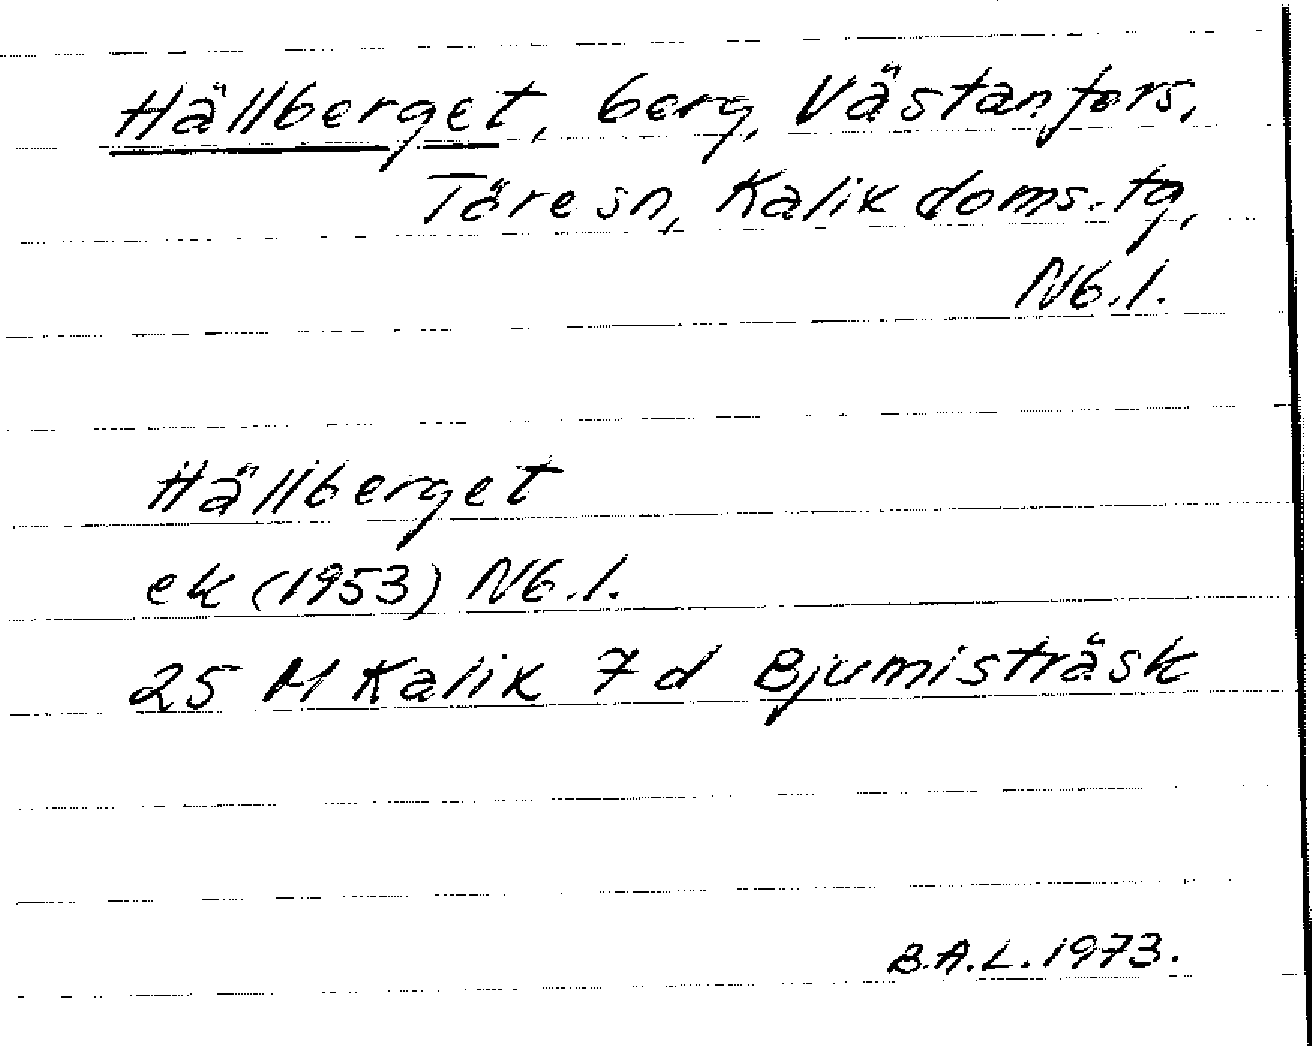 Hällberget, berg, Västanfors,
Töre sn, Kalix doms. tg,
Nb. l.
Hällberget
ek (1953) Nb. l.
25 M Kalix 7 d Bjumisträsk
B.A.L. 1973.